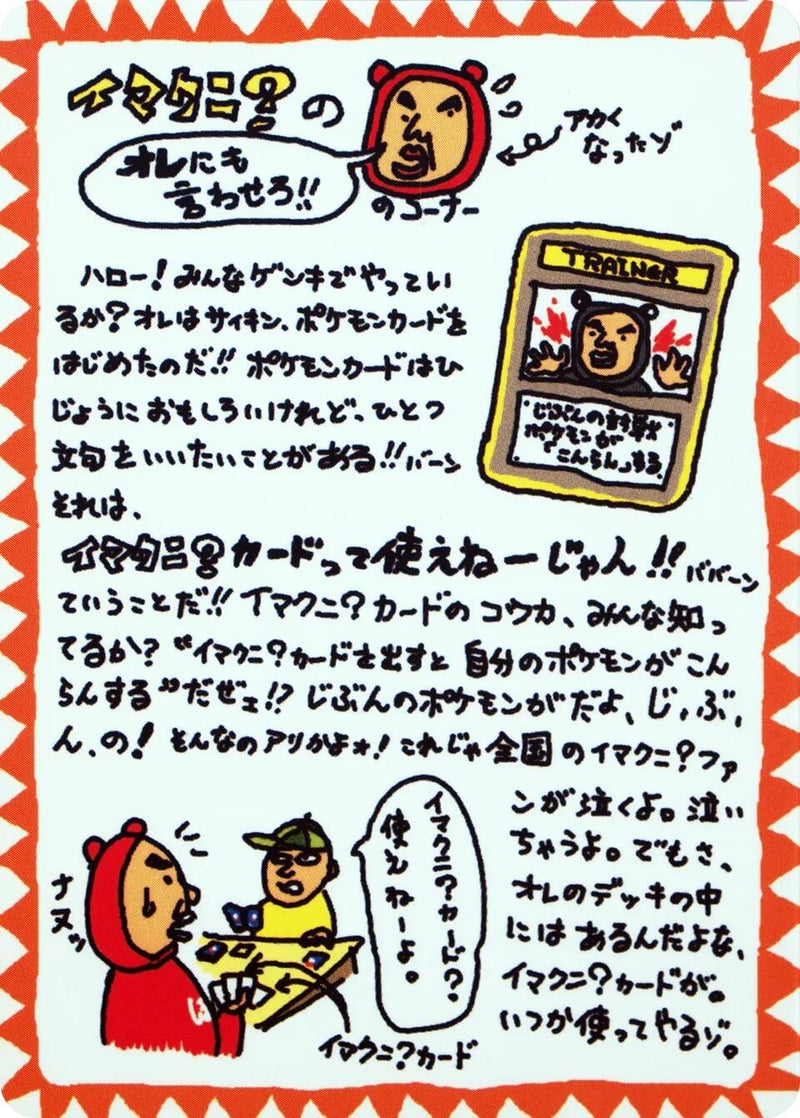 イマクニ?の
オレにも
言わせろ!!
のコーナー
アカく
なったゾ
ハロー!みんなゲンキでやってい
るか?オレはサイキン、ポケモンカードを
はじめたのだ!!ポケモンカードはひ
じょうにおもしろいけれど、ひとつ
文句をいいたいことがある!!バーン
それは、
TRAINER
じぶんの対戦
ポケモンが
「こんらん」する。
イマクニ?カードって使えねーじゃん!!ババーン
ていうことだ!!イマクニ?カードのコウカ、みんな知っ
てるか?“イマクニ?カードを出すと自分のポケモンがこん
らんする”だぜェ!?じぶんのポケモンがだよ、じ、ぶ、
ん、の!そんなのアリかよォ!これじゃ全国のイマクニ?ファ
ンが泣くよ。泣い
ちゃうよ。でもさ、
オレのデッキの中
にはあるんだよな、
イマクニ?カードが。
いつか使ってやるゾ。
ナヌッ
イマクニ?カード?
使えねーよ。
イマクニ?カード